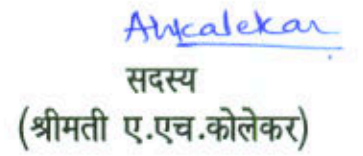 Ahkalekar
सदस्य
(श्रीमती ए.एच.कोलेकर)